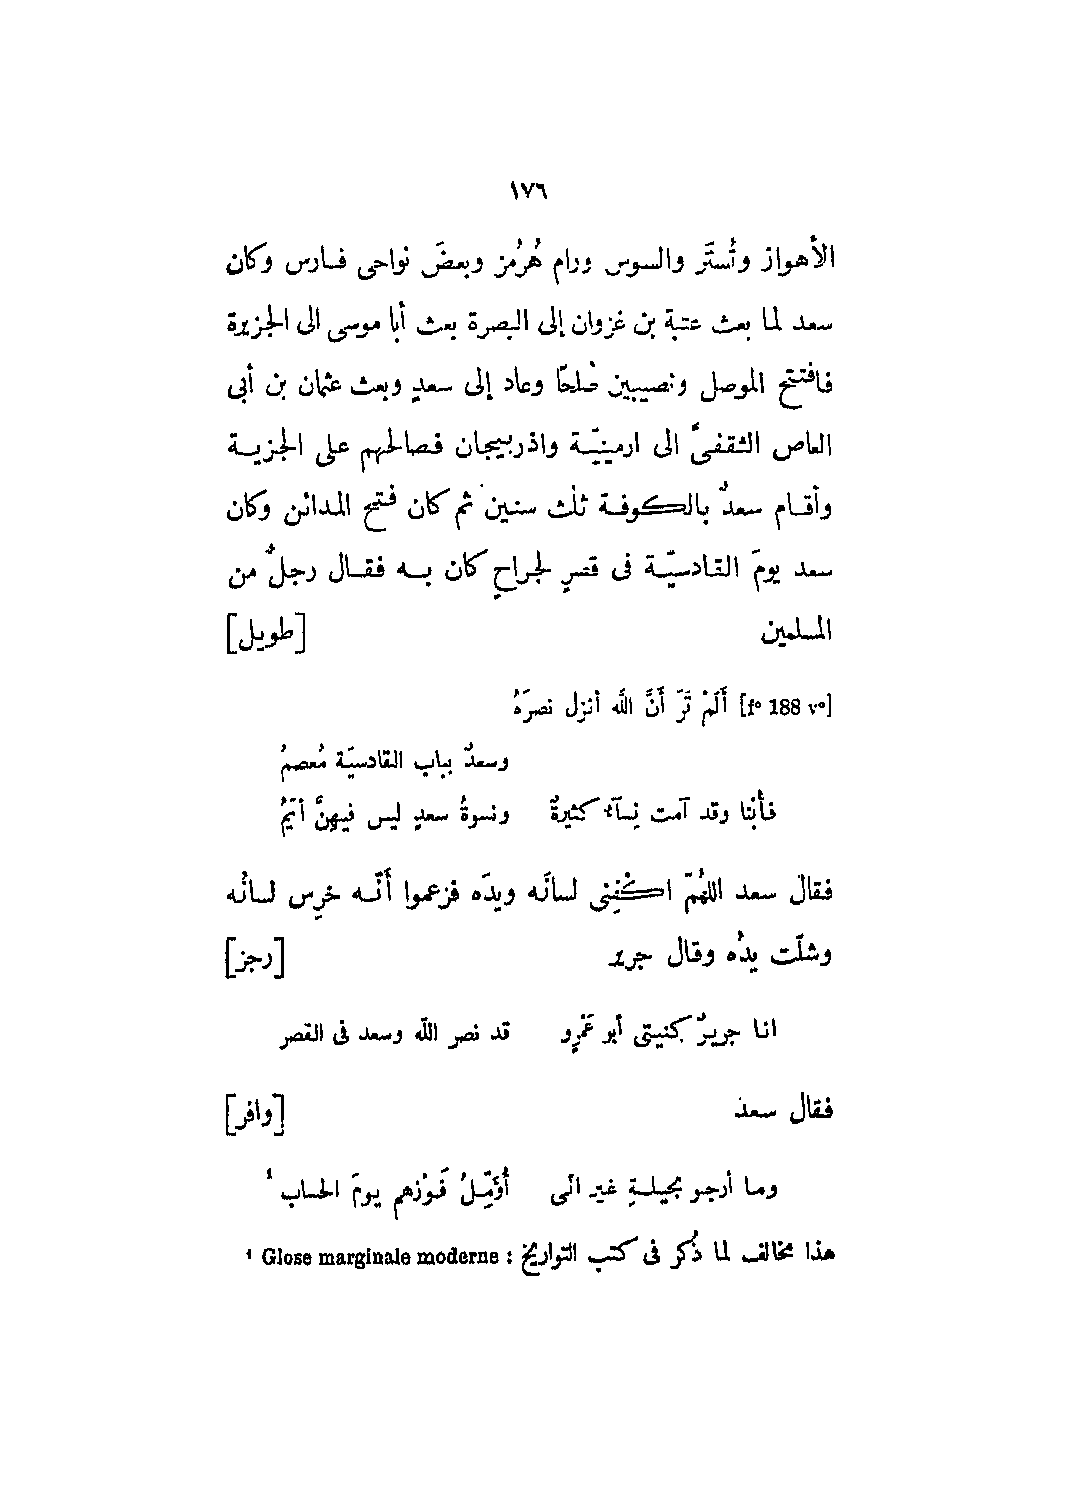 ١٧٦
الأهواز وتُستَّر والسوس ورام هُرْمُز وبعضَ نواحى فارس وكان
سعد لما بعث عتبة بن غزوان إلى البصرة بعث أبا موسى الى الجزيرة
فافتتح الموصل ونصيبين صُلحًا وعاد إلى سعدٍ وبعث عثمان بن أبى
العاص الثقفىَّ الى ارمينيّة واذربيجان فصالحهم على الجزية
وأقام سعدٌ بالكوفة ثلث سنين ثم كان فتح المدائن وكان
سعد يومَ القادسيّة فى قصرٍ لجراحٍ كان به فقال رجلٌ من
المسلمين [طويل]
[f° 188 v°] أَلَمْ تَرَ أَنَّ اللّه أنزل نصرَهُ
وسعدٌ بباب القادسيّة مُعصمُ
فأُبْنا وقد آمت نِسآء كثيرةٌ ونسوةُ سعدٍ ليس فيهنَّ أَيّمُ
فقال سعد اللهُمّ اكْفِنِى لسانَه ويدَه فزعموا أَنّه خرِس لسانُه
وشلّت يدُه وقال جرير [رجز]
انا جريرٌ كنيتى أبو عَمْرٍو قد نصر اللّه وسعد فى القصر
فقال سعد [وافر]
وما أرجو بجيلةِ غير انّى أُؤَمِّلُ فَوْزهم يومَ الحساب ¹
¹ Glose marginale moderne : هذا مخالف لما ذُكر فى كتب التواريخ